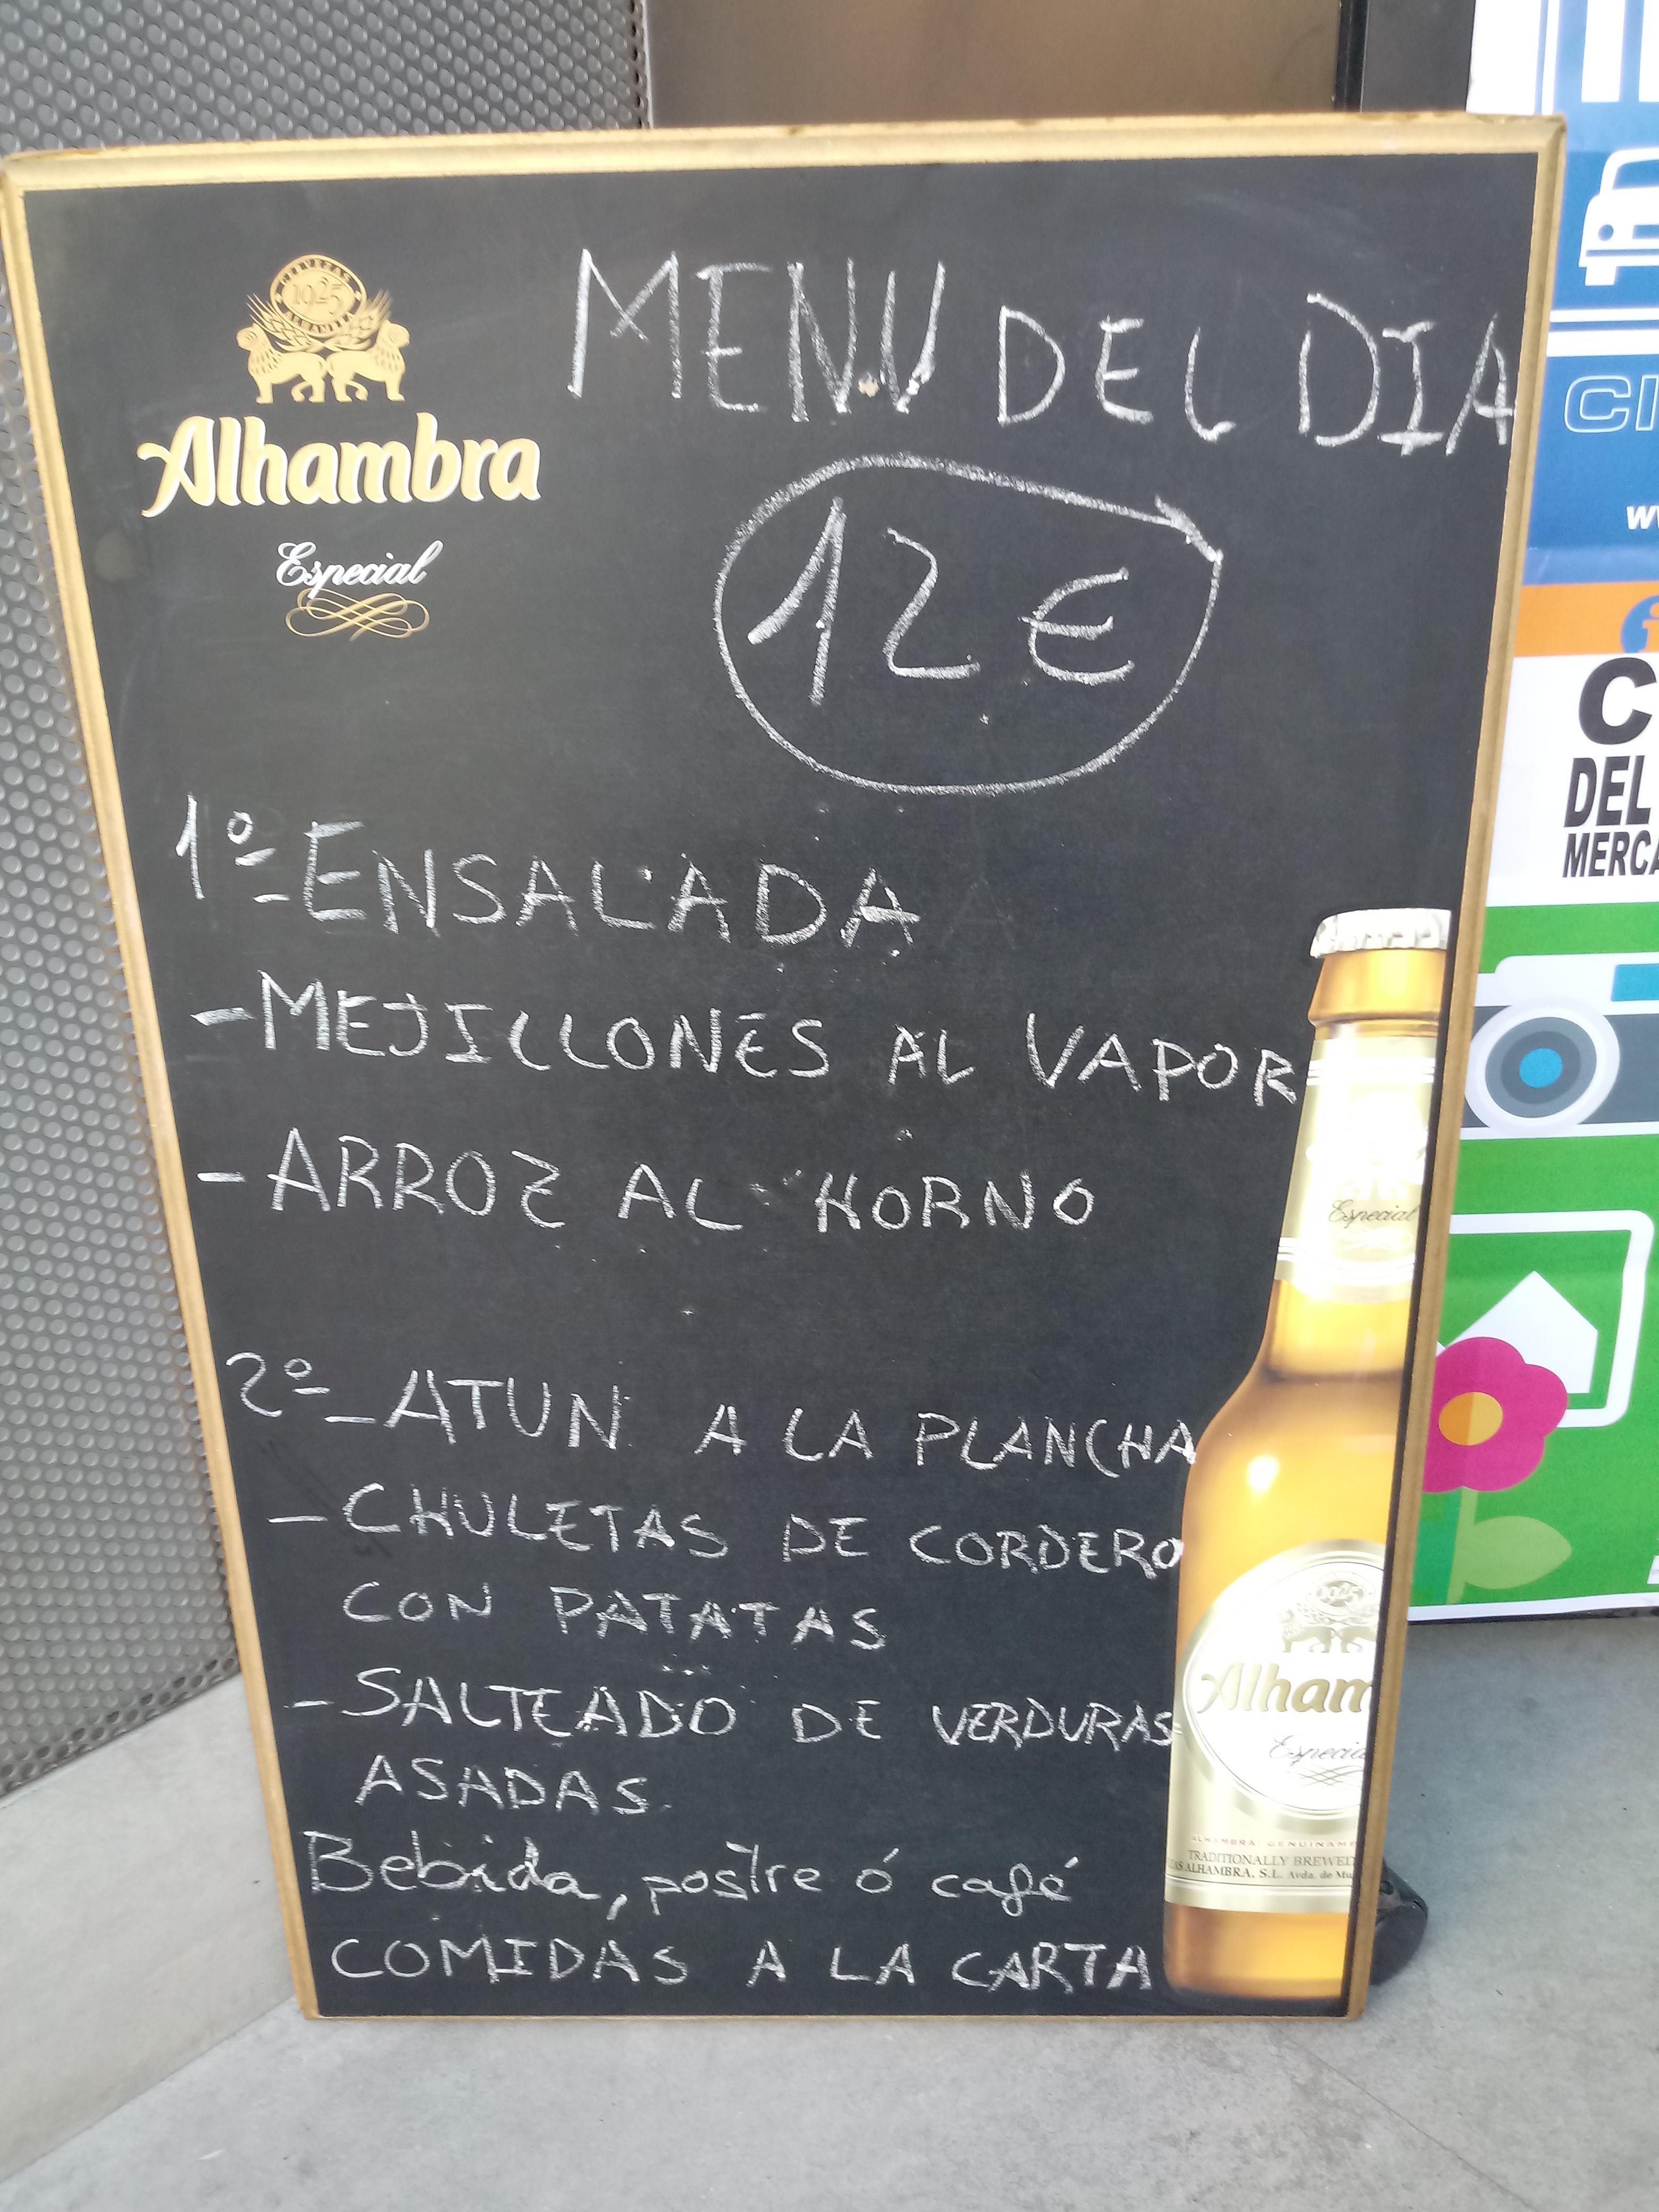 CERVEZAS
1925
ALHAMBRA
Alhambra
Especial
MENU DEL DIA
12 €
1º - ENSALADA
- MEJILLONES AL VAPOR
- ARROZ AL HORNO
2º - ATUN A LA PLANCHA
- CHULETAS DE CORDERO
CON PATATAS
- SALTEADO DE VERDURAS
ASADAS
Bebida, postre ó café
COMIDAS A LA CARTA
Especial
1925
Alham
Especia
ALHAMBRA GENUINAM
TRADITIONALLY BREWED
AS ALHAMBRA, S.L. Avda. de Mu
CI
ww
i
C
DEL
MERCA